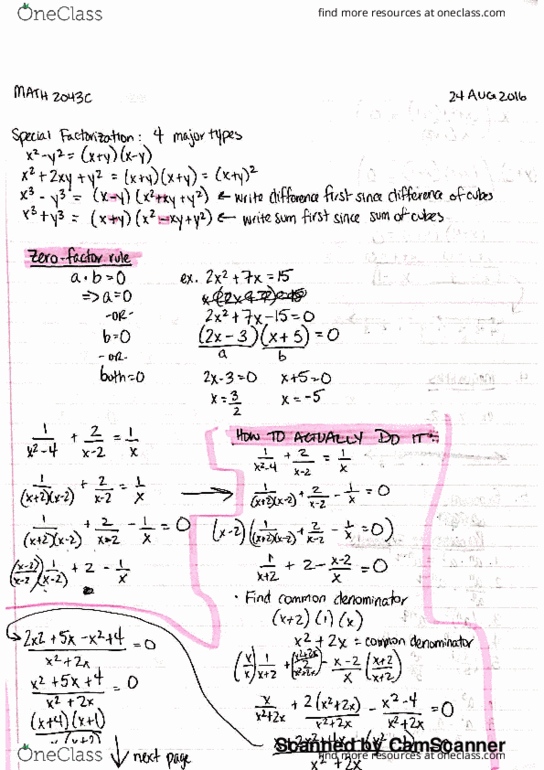 OneClass
find more resources at oneclass.com
MATH 2043C
24 AUG 2016
Special Factorization: 4 major types
x² - y² = (x+y)(x-y)
x² + 2xy + y² = (x+y)(x+y) = (x+y)²
x³ - y³ = (x-y)(x²+xy+y²) ← write difference first since difference of cubes
x³ + y³ = (x+y)(x²-xy+y²) ← write sum first since sum of cubes
Zero-factor rule
a · b = 0
⇒ a = 0
-OR-
b = 0
-OR-
both = 0
ex. 2x² + 7x = 15
2x² + 7x - 15 = 0
(2x - 3)(x + 5) = 0
a b
2x - 3 = 0 x + 5 = 0
x = 3/2 x = -5
1/(x²-4) + 2/(x-2) = 1/x
1/((x+2)(x-2)) + 2/(x-2) = 1/x
1/((x+2)(x-2)) + 2/(x-2) - 1/x = 0
((x-2)/(x-2)) 1/(x-2) + 2 - 1/x
HOW TO ACTUALLY DO IT:
1/(x²-4) + 2/(x-2) = 1/x
1/((x+2)(x-2)) + 2/(x-2) - 1/x = 0
(x-2)(1/((x+2)(x-2)) + 2/(x-2) - 1/x = 0)
1/(x+2) + 2 - (x-2)/x = 0
· Find common denominator
(x+2)(1)(x)
x² + 2x = common denominator
(x/x) 1/(x+2) + - (x-2)/x ((x+2)/(x+2))
x/(x²+2x) + 2(x²+2x)/(x²+2x) - (x²-4)/(x²+2x) = 0
x²+2x
(2x2 + 5x - x² + 4)/(x²+2x) = 0
(x² + 5x + 4)/(x² + 2x) = 0
(x+4)(x+1)
↓ next page
OneClass
Scanned by CamScanner
find more resources at oneclass.com